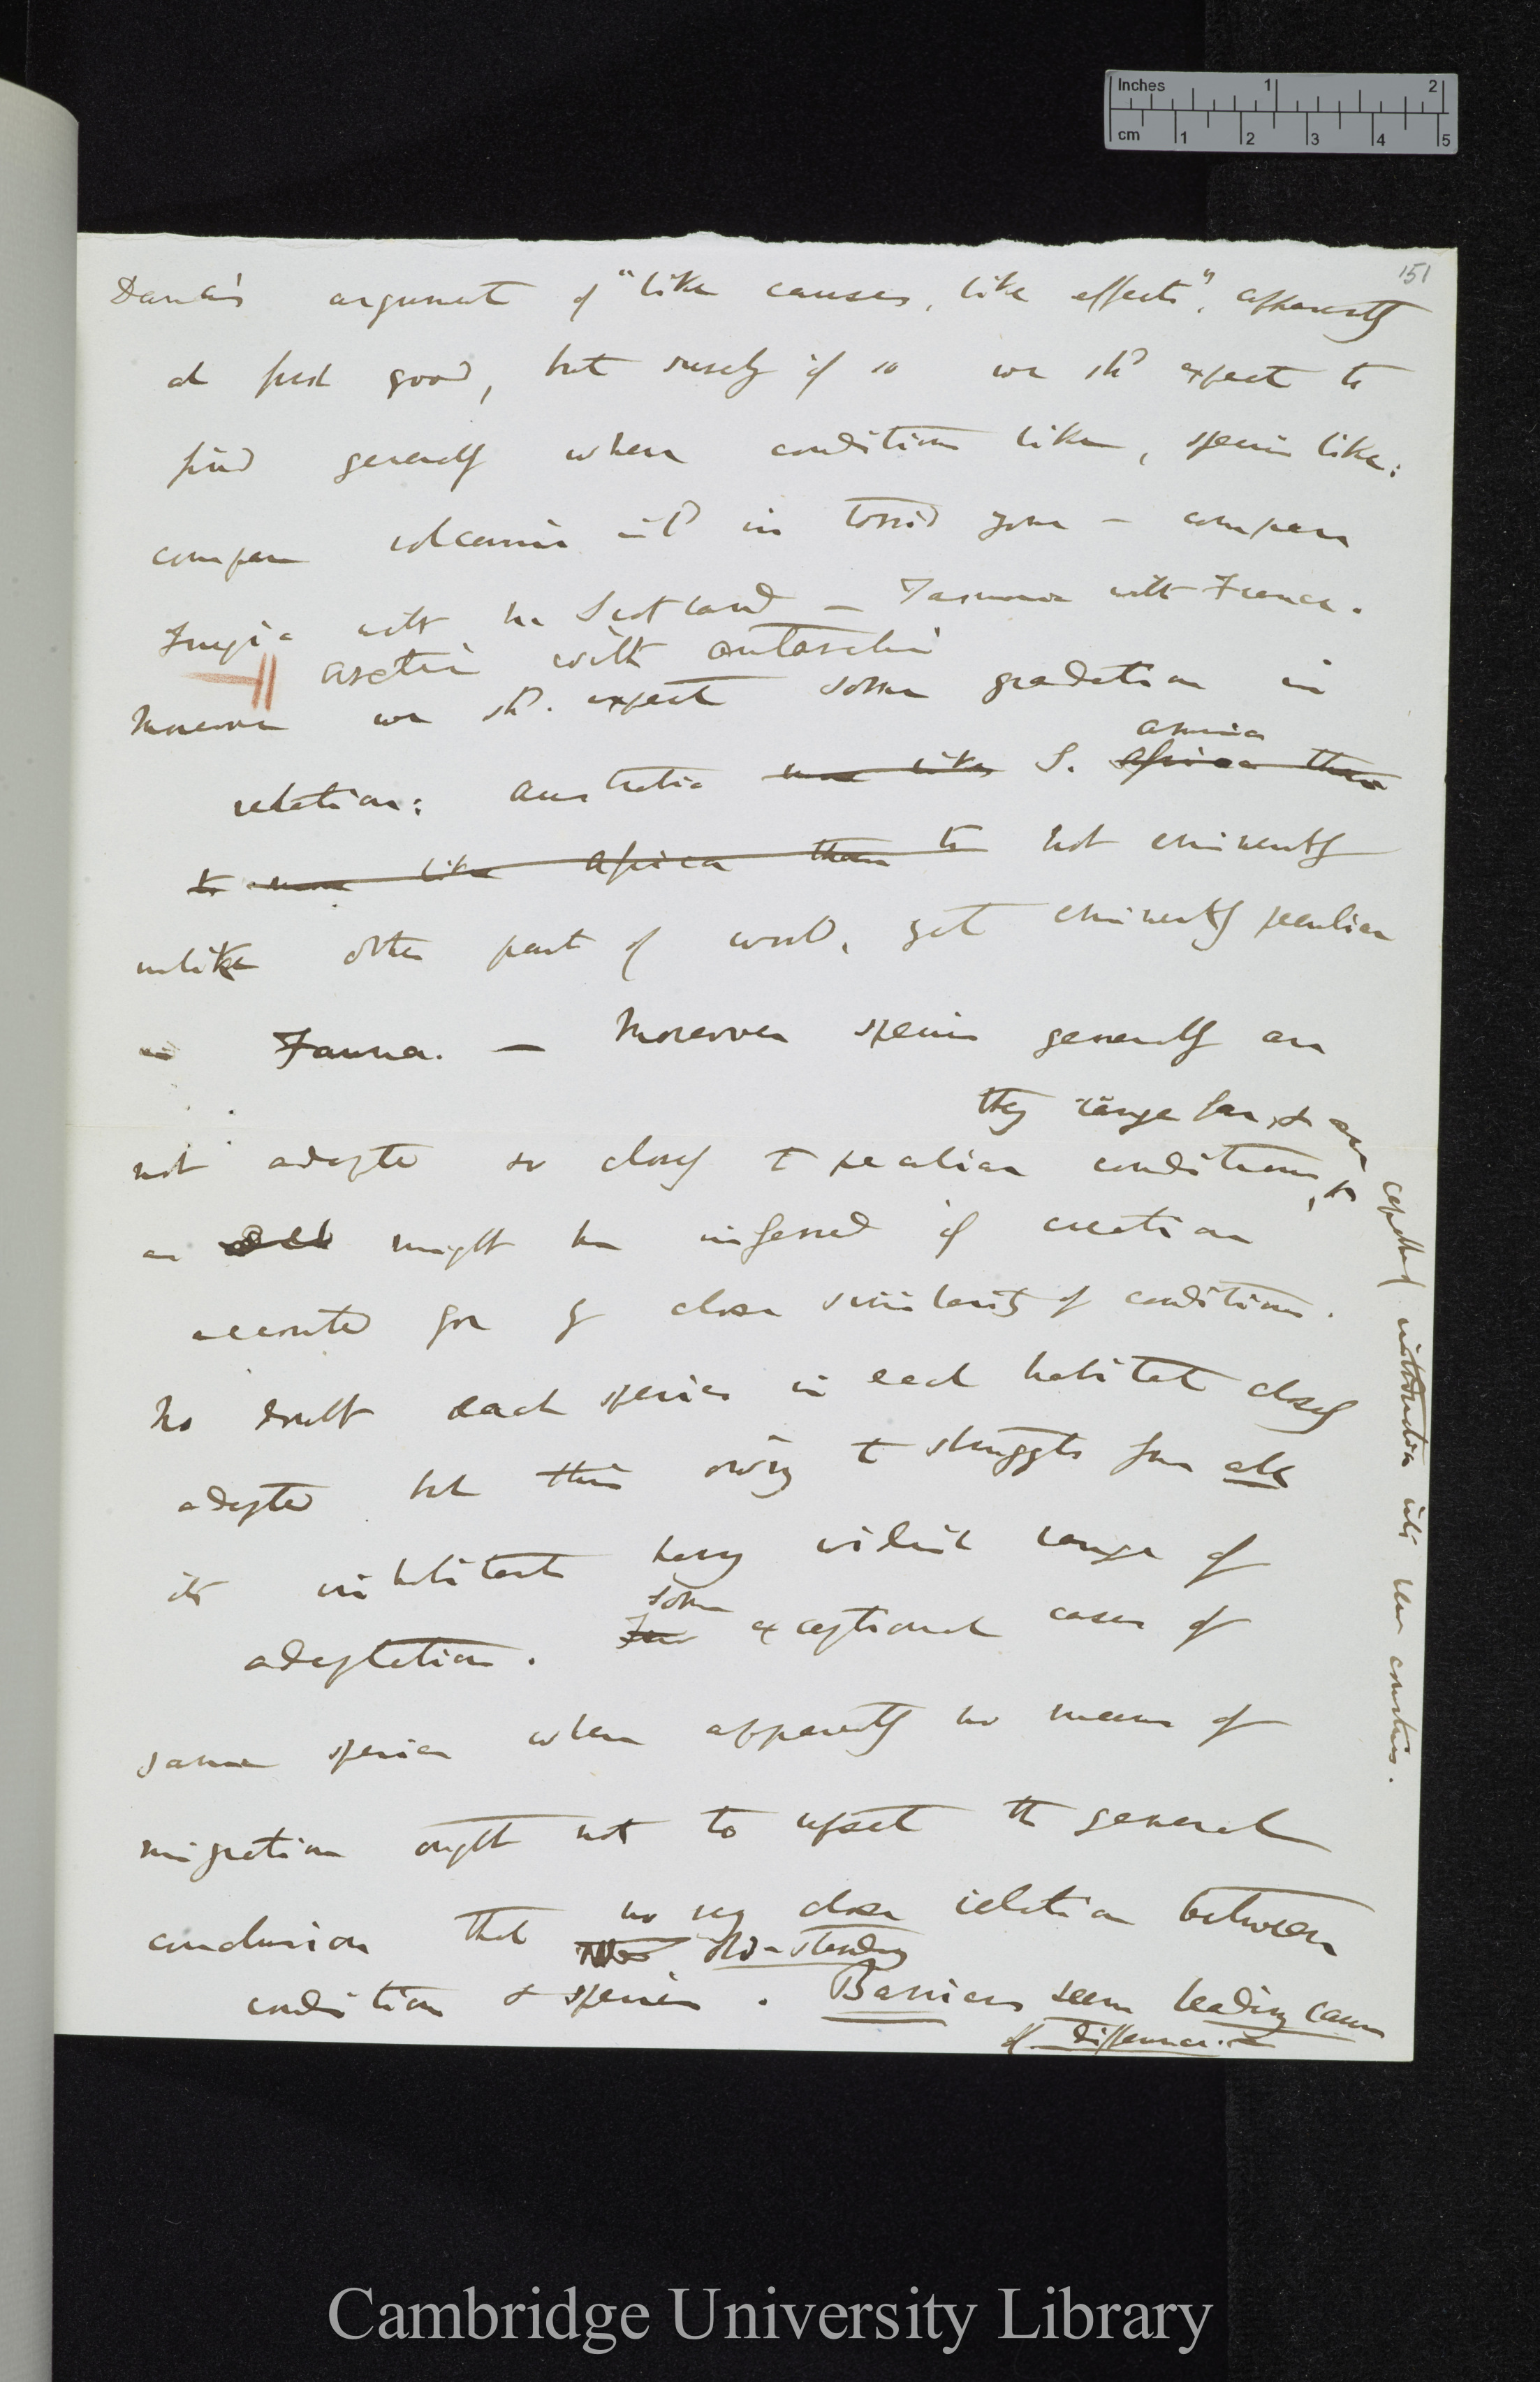 Inches 1 2
cm 1 2 3 4 5
151
Dana's argument of "like causes, like effects", apparently
at first good, but surely if so we shd expect to
find generally when condition like, species like:
compare volcanic isld in torrid zone — compare
Fuegia with Scotland — Tasmania with France.
arctic with antarctic
Moreover we shd. expect some gradation in
america
relation: Australia more like S. Africa than
to more like Africa than to not eminently
unlike other part of world, yet eminently peculiar
in Fauna. — Moreover species generally are
they range far, & are
not adapted so closely to peculiar conditions,
as might be inferred if creation
accounted for by close similarity of conditions.
No doubt each species in each habitat closely
adapted but this owing to struggle for all
its inhabitants having widest range of
some
adaptation. Few exceptional cases of
same species when apparently no means of
migration ought not to upset the general
conclusion that no very close relation between
old-standing
condition & species. Barriers seem leading cause
of difference.
capable of introduction into new countries.
Cambridge University Library